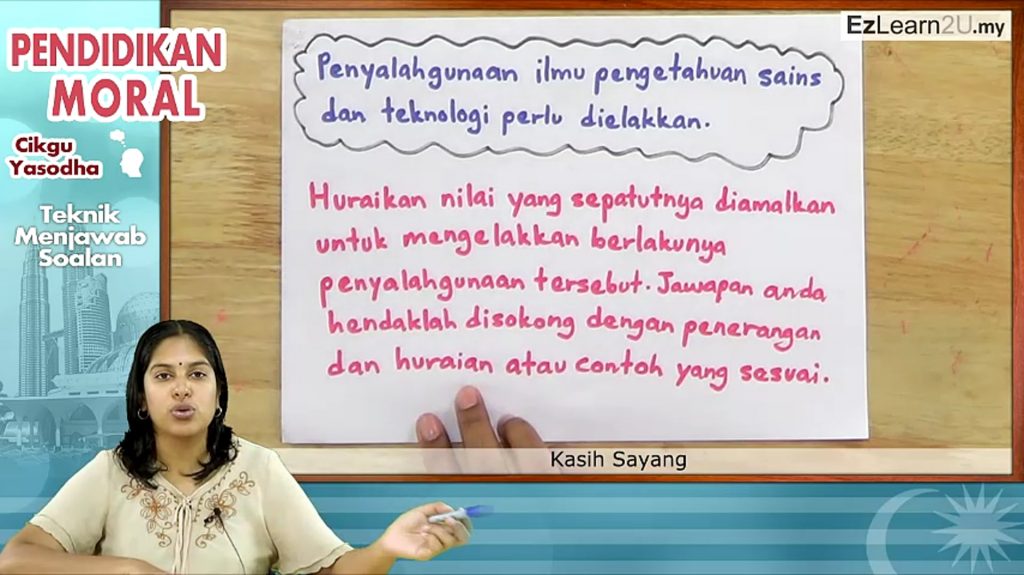 PENDIDIKAN
MORAL
Cikgu
Yasodha
Teknik
Menjawab
Soalan
EzLearn2U.my
Penyalahgunaan ilmu pengetahuan sains
dan teknologi perlu dielakkan.
Huraikan nilai yang sepatutnya diamalkan
untuk mengelakkan berlakunya
penyalahgunaan tersebut. Jawapan anda
hendaklah disokong dengan penerangan
dan huraian atau contoh yang sesuai.
Kasih Sayang